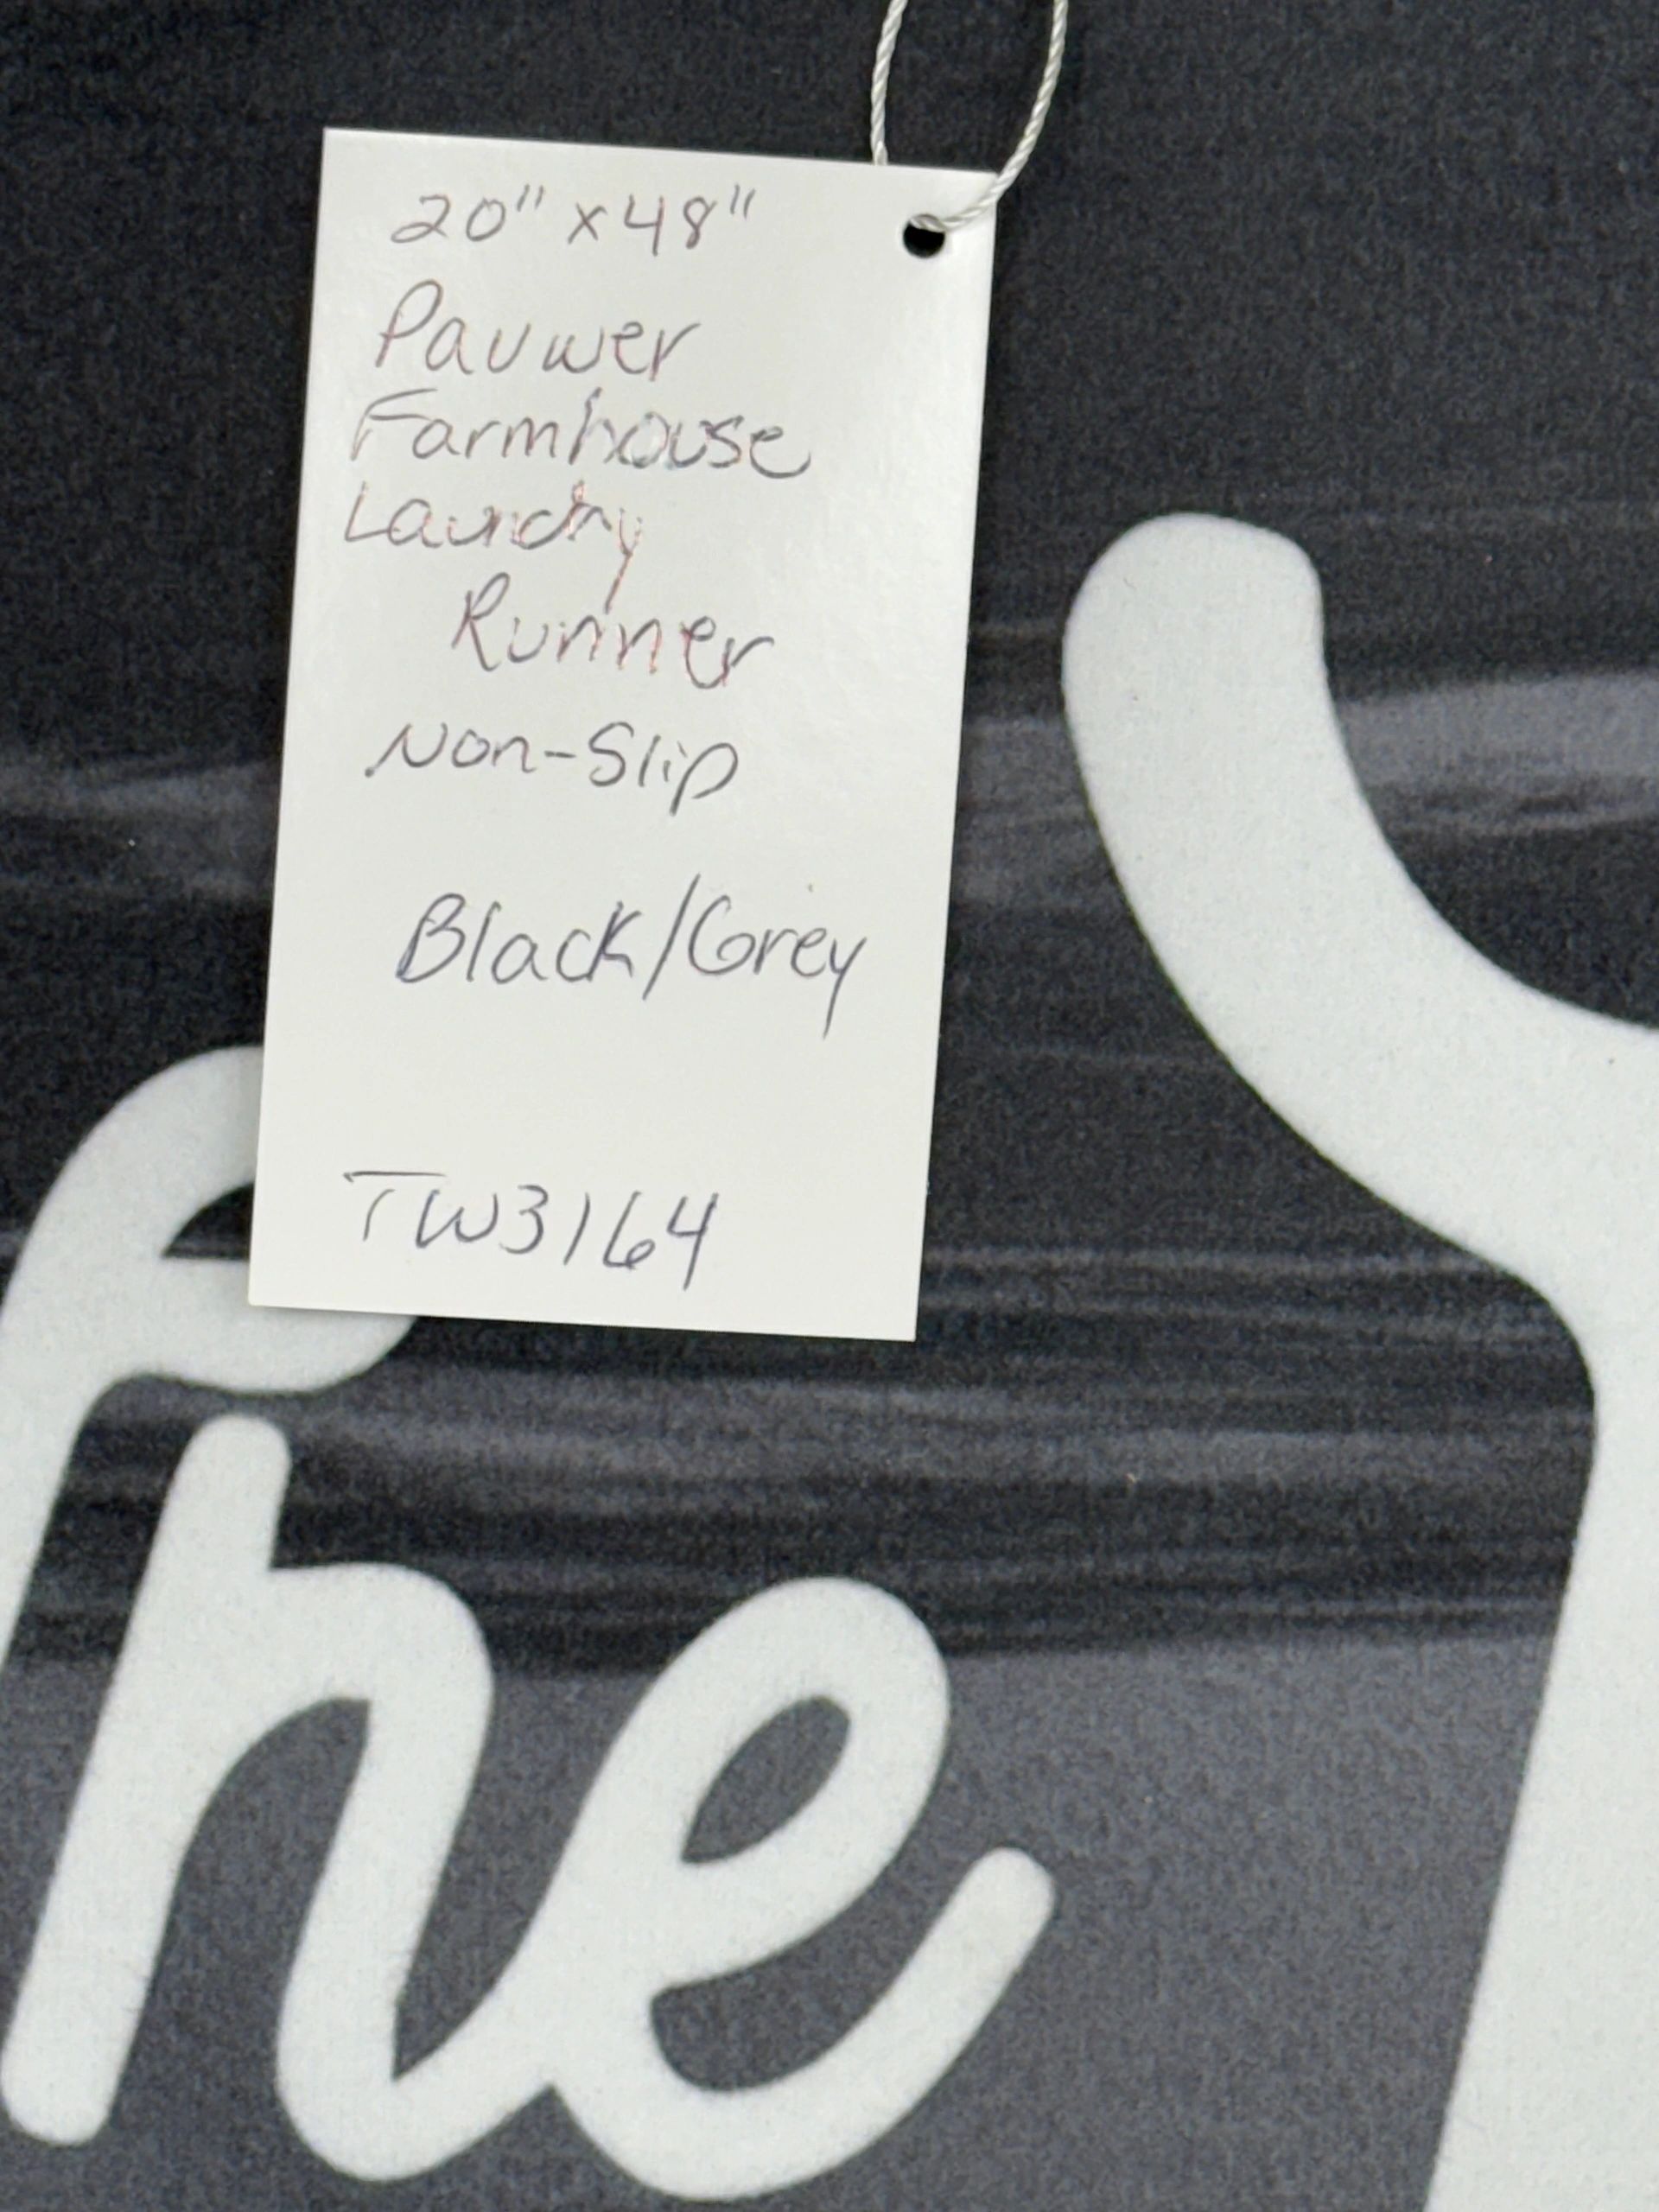 20" x 48"
Pauwer
Farmhouse
Laundry
Runner
Non-Slip
Black/Grey
TW3164
he